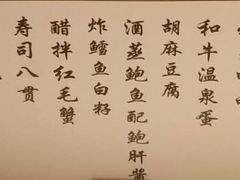 和牛温泉蛋
胡麻豆腐
酒蒸鲍鱼配鲍肝酱
炸鳕鱼白籽
醋拌红毛蟹
寿司八贯